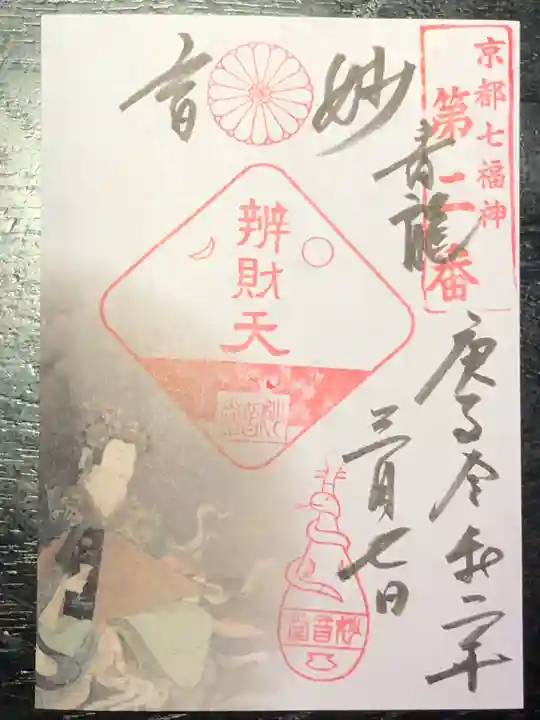 京都七福神
第二番
妙音
青龍
辨財天
庚子令和二年
三月七日
妙音堂